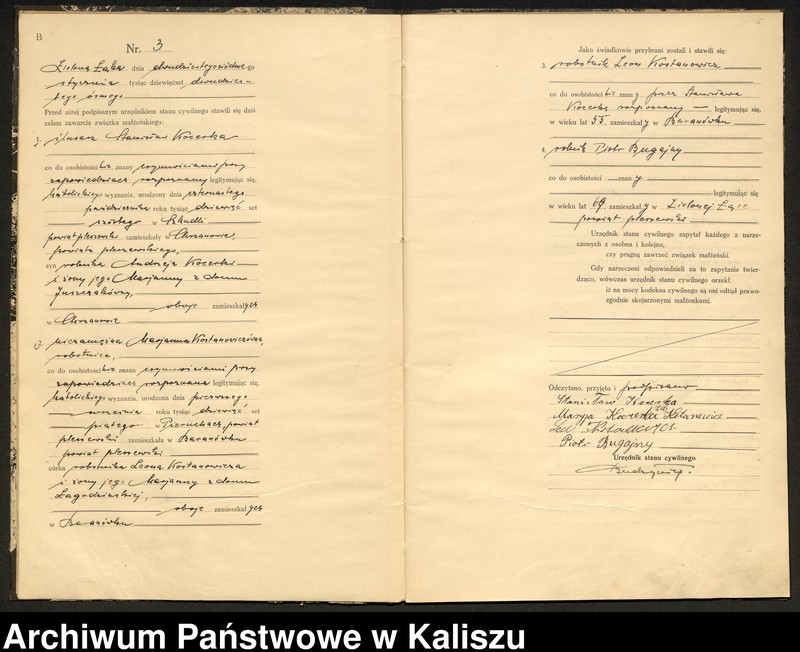 B
Nr. 3
Zielona Łąka dnia dwudziestego siódmego
stycznia tysiąc dziewięćset dwudzies-
tego ósmego
Przed niżej podpisanym urzędnikiem stanu cywilnego stawili się dziś
celem zawarcia związku małżeńskiego:
1. ślusarz Stanisław Kocerka
co do osobistości tu znany czynnościami przy
zapowiedziach rozpoznany legitymując się,
katolickiego wyznania, urodzony dnia czternastego
października roku tysiąc dziewięć set
szóstego w Szkudli
powiat pleszewski zamieszkały w Chrzanowie,
powiatu pleszewskiego,
syn robotnika Andrzeja Kocerki
i żony jego Marjanny z domu
oboje zamieszkałych
w Chrzanowie
2. niezamężna Marjanna Kostanowiczówna,
robotnica,
co do osobistości tu znana czynnościami przy
zapowiedziach rozpoznana legitymując się,
katolickiego wyznania, urodzona dnia pierwszego
września roku tysiąc dziewięć set
piątego w Pieruchach, powiat
pleszewski zamieszkała w Baranówku
powiat pleszewski
córka robotnika Leona Kostanowicza
i żony jego Marjanny z domu
oboje zamieszkałych
w Baranówku
Jako świadkowie przybrani zostali i stawili się:
3. robotnik Leon Kostanowicz
co do osobistości tu znany przez Stanisława
Kocerkę rozpoznany legitymując się,
w wieku lat 55, zamieszkały w Baranówku
4. rolnik Piotr Bugajny
co do osobistości znany
legitymując się
w wieku lat 69, zamieszkały w Zielonej Łące
powiat pleszewski
Urzędnik stanu cywilnego zapytał każdego z narze-
czonych z osobna i kolejno,
czy pragną zawrzeć związek małżeński.
Gdy narzeczeni odpowiedzieli na to zapytanie twier-
dząco, wówczas urzędnik stanu cywilnego orzekł,
iż na mocy kodeksu cywilnego są oni odtąd prawo-
zgodnie skojarzonymi małżonkami.
Odczytano, przyjęto i podpisano
Stanisław Kocerka
Maryja Kocerka
Piotr Bugajny
Urzędnik stanu cywilnego
Archiwum Państwowe w Kaliszu